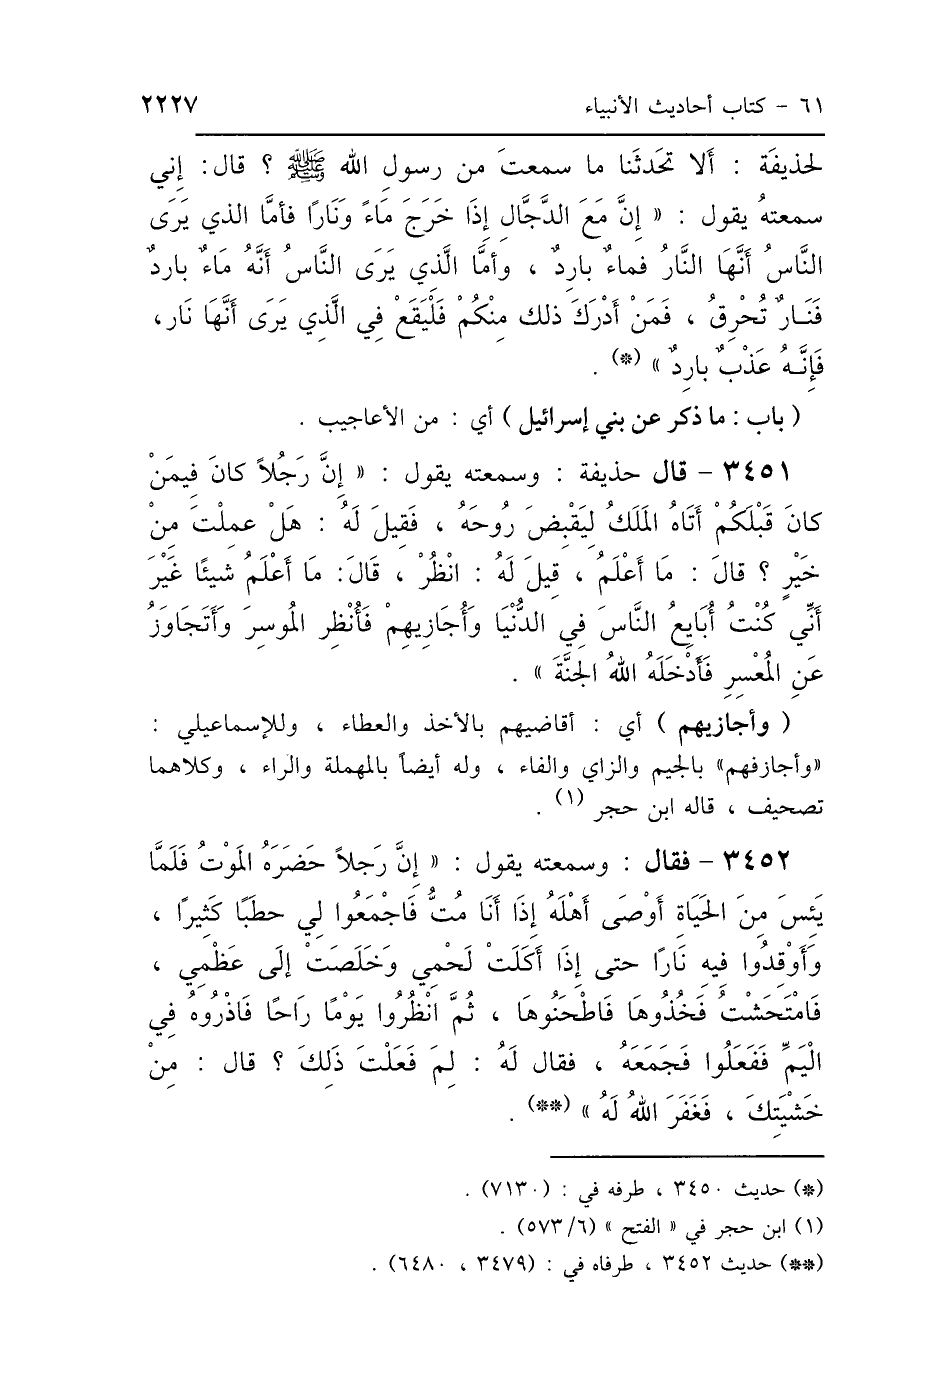 ٦١ - كتاب أحاديث الأنبياء
٢٢٢٧
لحذيفَة : أَلا تحَدثَنا ما سمعتَ من رسولِ الله ﷺ ؟ قال: إني
سمعتهُ يقول : « إِنَّ مَعَ الدَّجَّالِ إِذَا خَرَجَ مَاءً وَنَارًا فأمَّا الذي يَرَى
النَّاسُ أَنَّهَا النَّارُ فماءٌ بارِدٌ ، وأمَّا الَّذِي يَرَى النَّاسُ أَنَّهُ مَاءٌ باردٌ
فَنَـارٌ تُحْرِقُ ، فَمَنْ أَدْرَكَ ذلك مِنْكُمْ فَلْيَقَعْ فِي الَّذِي يَرَى أَنَّهَا نَار،
فَإِنَّـهُ عَذْبٌ بارِدٌ » (*) .
( باب : ما ذكر عن بني إسرائيل ) أي : من الأعاجيب .
٣٤٥١ - قال حذيفة : وسمعته يقول : « إِنَّ رَجُلاً كانَ فِيمَنْ
كانَ قَبْلَكُمْ أَتَاهُ المَلَكُ لِيَقْبِضَ رُوحَهُ ، فَقِيلَ لَهُ : هَلْ عملْتَ مِنْ
خَيْرٍ ؟ قالَ : مَا أَعْلَمُ ، قِيلَ لَهُ : انْظُرْ ، قَالَ: مَا أَعْلَمُ شيئًا غَيْرَ
أَنِّي كُنْتُ أُبَايِعُ النَّاسَ فِي الدُّنْيَا وَأُجَازِيهِمْ فَأُنْظِر المُوسرَ وَأَتَجَاوَزُ
عَنِ المُعْسِرِ فَأَدْخَلَهُ اللهُ الجنَّةَ » .
( وأجازيهم ) أي : أقاضيهم بالأخذ والعطاء ، وللإسماعيلي :
«وأجازفهم» بالجيم والزاي والفاء ، وله أيضاً بالمهملة والراء ، وكلاهما
تصحيف ، قاله ابن حجر (١) .
٣٤٥٢ - فقال : وسمعته يقول : « إِنَّ رَجلاً حَضَرَهُ المَوْتُ فَلَمَّا
يَئِسَ مِنَ الحَيَاةِ أَوْصَى أَهْلَهُ إِذَا أَنَا مُتُّ فَاجْمَعُوا لِي حطبًا كَثِيرًا ،
وَأَوْقِدُوا فِيهِ نَارًا حتى إِذَا أَكَلَتْ لَحْمِي وَخَلَصَتْ إِلَى عَظْمِي ،
فَامْتَحَشْتُ فَخُذُوهَا فَاطْحَنُوهَا ، ثُمَّ انْظُرُوا يَوْمًا رَاحًا فَاذْرُوهُ فِي
الْيَمِّ فَفَعَلُوا فَجَمَعَهُ ، فقال لَهُ : لِمَ فَعَلْتَ ذَلِكَ ؟ قال : مِنْ
خَشْيَتِكَ ، فَغَفَرَ اللهُ لَهُ » (**) .
(*) حديث ٣٤٥٠ ، طرفه في : (٧١٣٠) .
(١) ابن حجر في « الفتح » (٥٧٣/٦) .
(**) حديث ٣٤٥٢ ، طرفاه في : (٣٤٧٩ ، ٦٤٨٠) .